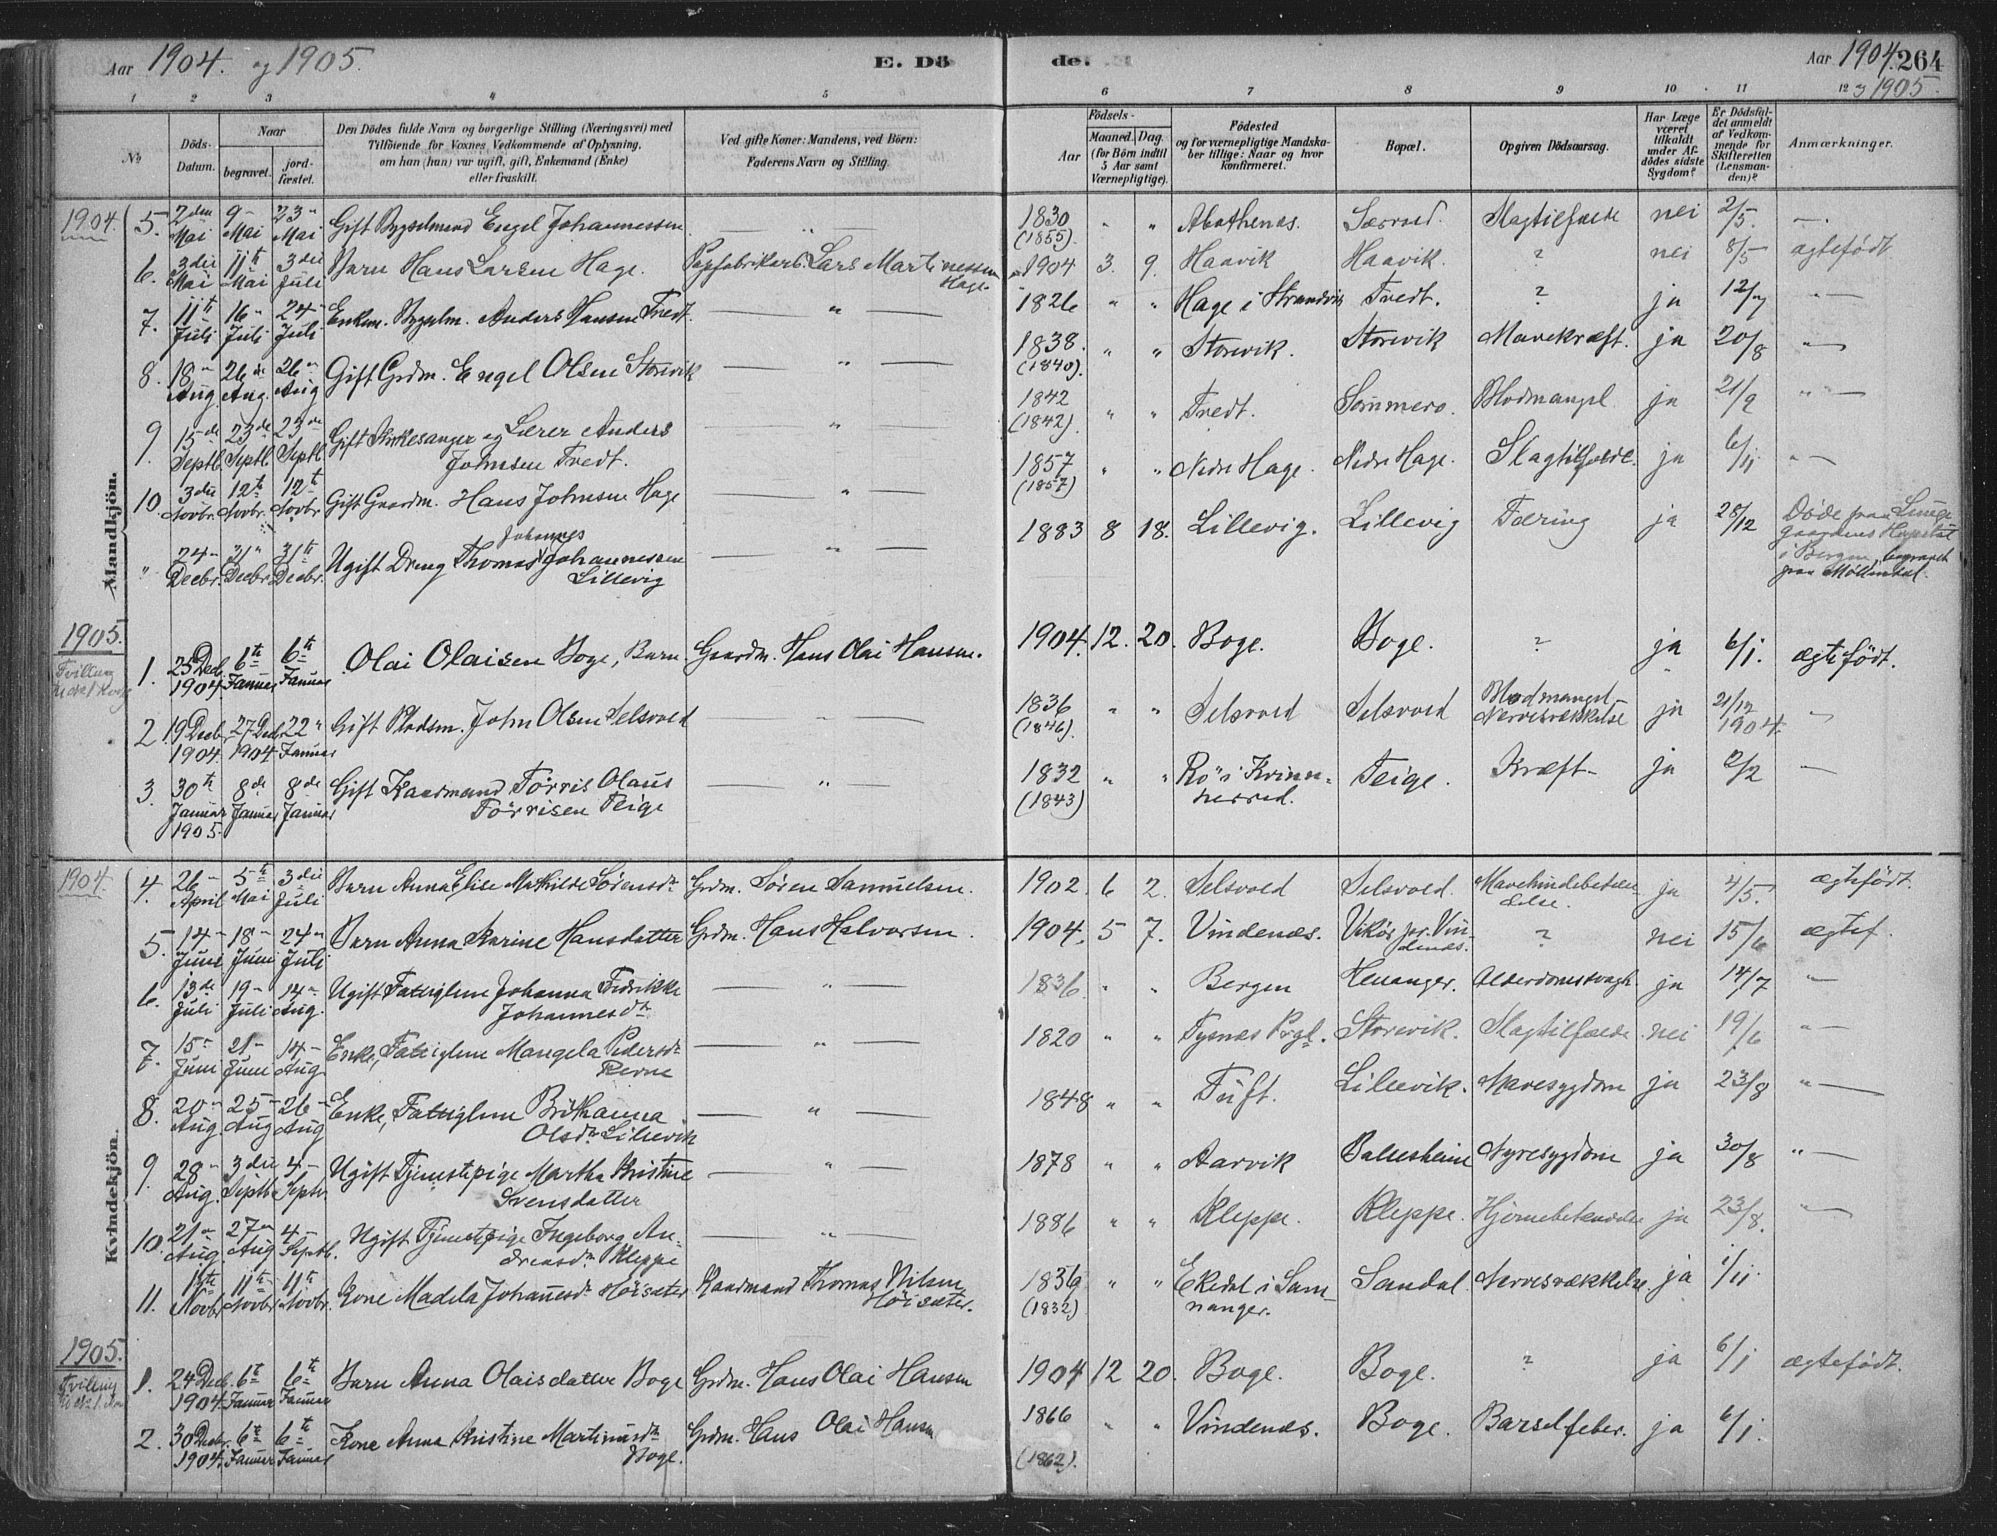 Aar 1904. og 1905. E. Dö de. Aar 1904. 264
og 1905.
1 2 3 4 5 6 7 8 9 10 11 12
No
Döds-Datum.
Naar
begravet.
jordfæstet.
Den Dödes fulde Navn og borgerlige Stilling (Næringsvei) med
Tilföiende for Voxnes Vedkommende af Oplysning,
om han (hun) var ugift, gift, Enkemand (Enke)
eller fraskilt.
Ved gifte Koner: Mandens, ved Börn:
Faderens Navn og Stilling.
Födsels-
Aar
Maaned. Dag.
(for Börn indtil
5 Aar samt
Værnepligtige).
Födested
og for værnepligtige Mandskaber tillige: Naar og hvor
konfirmeret.
Bopæl.
Opgiven Dödsaarsag.
Har Læge
været
tilkaldt
under Afdödes sidste
Sygdom?
Er Dödsfaldet anmeldt
af Vedkommende for
Skifteretten
(Lensmanden)?
Anmærkninger.
Mandkjön.
1904.
5. 2den Mai 9 Mai 23 Mai Gift Bygselmand Engel Johannessen 1830 (1855). " " Særvold. Slagtilfælde nei 2/5
6. 3die Mai 11te Mai 3die Juli Barn Hans Larsen Hage. Lars Martinessen Hage. 1904 3. 9. Haavik Haavik. ? nei 8/5 ægtefødt
7. 11te Juli 16 Juli 24 Juli Enkem. Bygselm. Anders Hansen Tvedt. " 1826 " " Hage i Strandvik Tvedt. ? ja 12/7 "
8. 18 Aug. 26de Aug. 26 Aug Gift Grdm. Engel Olsen Storevik " 1838. (1840). " " Storevik. Storevik Mavekræft. ja 20/8 "
9. 15de Septb. 23de Septb. 23de Septb. Gift Kirkesanger og Lærer Anders
Johnsen Tvedt. " 1842 (1842). " " Tvedt. Sommero. Blodmangel ja 21/9 "
10. 3die Novbr. 12te Novbr. 12te Novbr. Gift Gaardm. Hans Johnsen Hage " 1857 (1857) " " Nedre Hage. Nedre Hage. Slagtilfælde. ja 6/11 "
" 24 Decbr. 31 Decbr. 31te Decbr. Ugift Dreng Thomas Johannes Johannessen
Lillevig " 1883 8 18. Lillevig. Lillevig Tæring ja 28/12 Døde paa
Gaardens Hospital
i Bergen, begravet
paa Möllendal.
1905.
Tvilling
1. 25 Decb. 1904. 6te Januar 6te Januar Olai Olaisen Boge, Barn Gaardm. Hans Olai Hansen. 1904. 12. 20. Boge. Boge. ? ja 6/1. ægtefødt.
2. 19 Decb. 1904. 27 Decbr. 1904 22 Januar Gift Pladsm. John Olsen Selsvold " 1836 (1846). " " Selsvold Selsvold Blodmangel
Nervesvækkelse ja 21/12 1904. "
3. 30te Januar 1905. 8de Januar 8de Januar Gift Kaarmand Tørris Olaus
Tørrisen Teige " 1832 (1843) " " Rö i Kvinnherred. Teige. Kræft ja 2/2
Kvindekjön.
1904.
4. 26 April 5te Mai 3die Juli Barn Anna Elise Mathilde Sørensdr Grdm. Søren Samuelsen. 1902. 6 2. Selsvold Selsvold. ja 4/5. ægtefødt.
5. 14 Juni 18 Juni 24 Juli Barn Anna Karine Hansdatter Grdm. Hans Halvorsen. 1904. 5 7. Vindenæs. Vikør pr. Vindenæs. ? nei 15/6 ægtef.
6. 13de Juli 19 Juli 14 Aug. Ugift Fattiglem Johanna Fredrikke
Johannesdr " 1836. " " Bergen Henanger. Alderdomssvagh. ja 14/7 "
7. 15 Juni 21 Juni 14 Aug. Enke, Fattiglem Mangela Pedersdr
" 1820 " " Tysnæs Prgl. Storevik. Slagtilfælde nei 19/6 "
8. 20 Aug. 25 Aug 26 Aug Enke, Fattiglem Brithanna
Olsdr Lillevik " 1848 " " Tuft. Lillevik. Mavesygdom ja 23/8 "
9. 28 Aug. 3die Septb 4 Septr. Ugift Tjenestepige Martha Kristine
Svensdatter " 1878 " " Aarvik Balesheim Nyresygdom ja 30/8 "
10. 21 Aug. 27 Aug 4 Septb. Ugift Tjenestepige Ingeborg Andreasdr Kleppe " 1886 " " Kleppe. Kleppe. ja 23/8. "
11. Novbr 11te Novbr. 11te Novbr. Kone Madela Johannesdr Höisæter Kaarmand Thomas Nilsen
Höisæter. 1836 (1832) " " Ekedal i Samnanger. Sandal Nervesvækkelse. ja 1/11.
1905.
Tvilling
1. 24 Decb. 1904. 6te Januar 6te Januar Barn Anna Olaisdatter Boge Grdm. Hans Olai Hansen 1904 12 20. Boge. Boge. ? ja 6/1 ægtefødt.
2. 30 Decbr. 1904. 6te Januar 6te Januar Kone Anna Kristine Martinusdr
Boge. Grdm. Hans Olai Hansen 1866 (1862). " " Vindenæs. Boge. Barselfeber. ja 6/1.